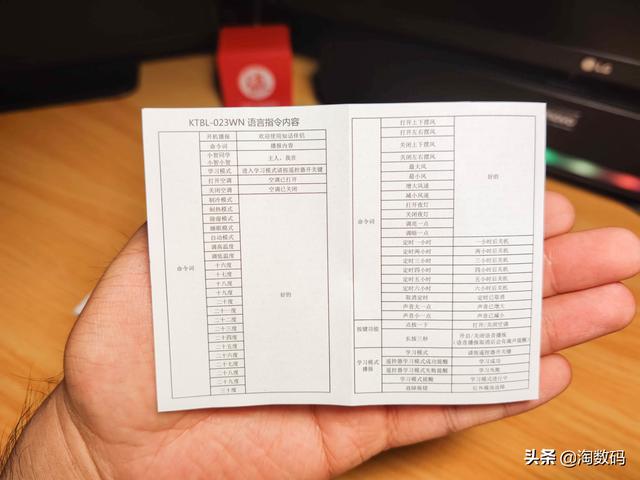 KTBL-023WN 语言指令内容
开机播报 欢迎使用知话伴侣
命令词 播报内容
小智同学 小智小智 主人，我在
学习模式 进入学习模式请按遥控器开关键
打开空调 空调已打开
关闭空调 空调已关闭
命令词
制冷模式
制热模式
除湿模式
睡眠模式
自动模式
调高温度
调低温度
十六度
十七度
十八度
十九度
二十度
二十一度
二十二度
二十三度
二十四度
二十五度
二十六度
二十七度
二十八度
二十九度
三十度
好的
命令词
打开上下摆风
打开左右摆风
关闭上下摆风
关闭左右摆风
最大风
最小风
增大风速
减小风速
打开夜灯
关闭夜灯
调亮一点
调暗一点
好的
定时一小时 一小时后关机
定时两小时 两小时后关机
定时三小时 三小时后关机
定时四小时 四小时后关机
定时五小时 五小时后关机
定时六小时 六小时后关机
取消定时 定时已取消
声音大一点 声音已增大
声音小一点 声音已减小
按键功能
点按一下 打开/关闭空调
长按三秒 开启/关闭语音播报
（语音播报取消后会有滴声提醒）
学习模式播报
学习模式 请按遥控器开关键
遥控器学习模式成功提醒 学习成功
遥控器学习模式失败提醒 学习失败
学习模式提醒 学习模式进行中
LG
头条 @淘数码